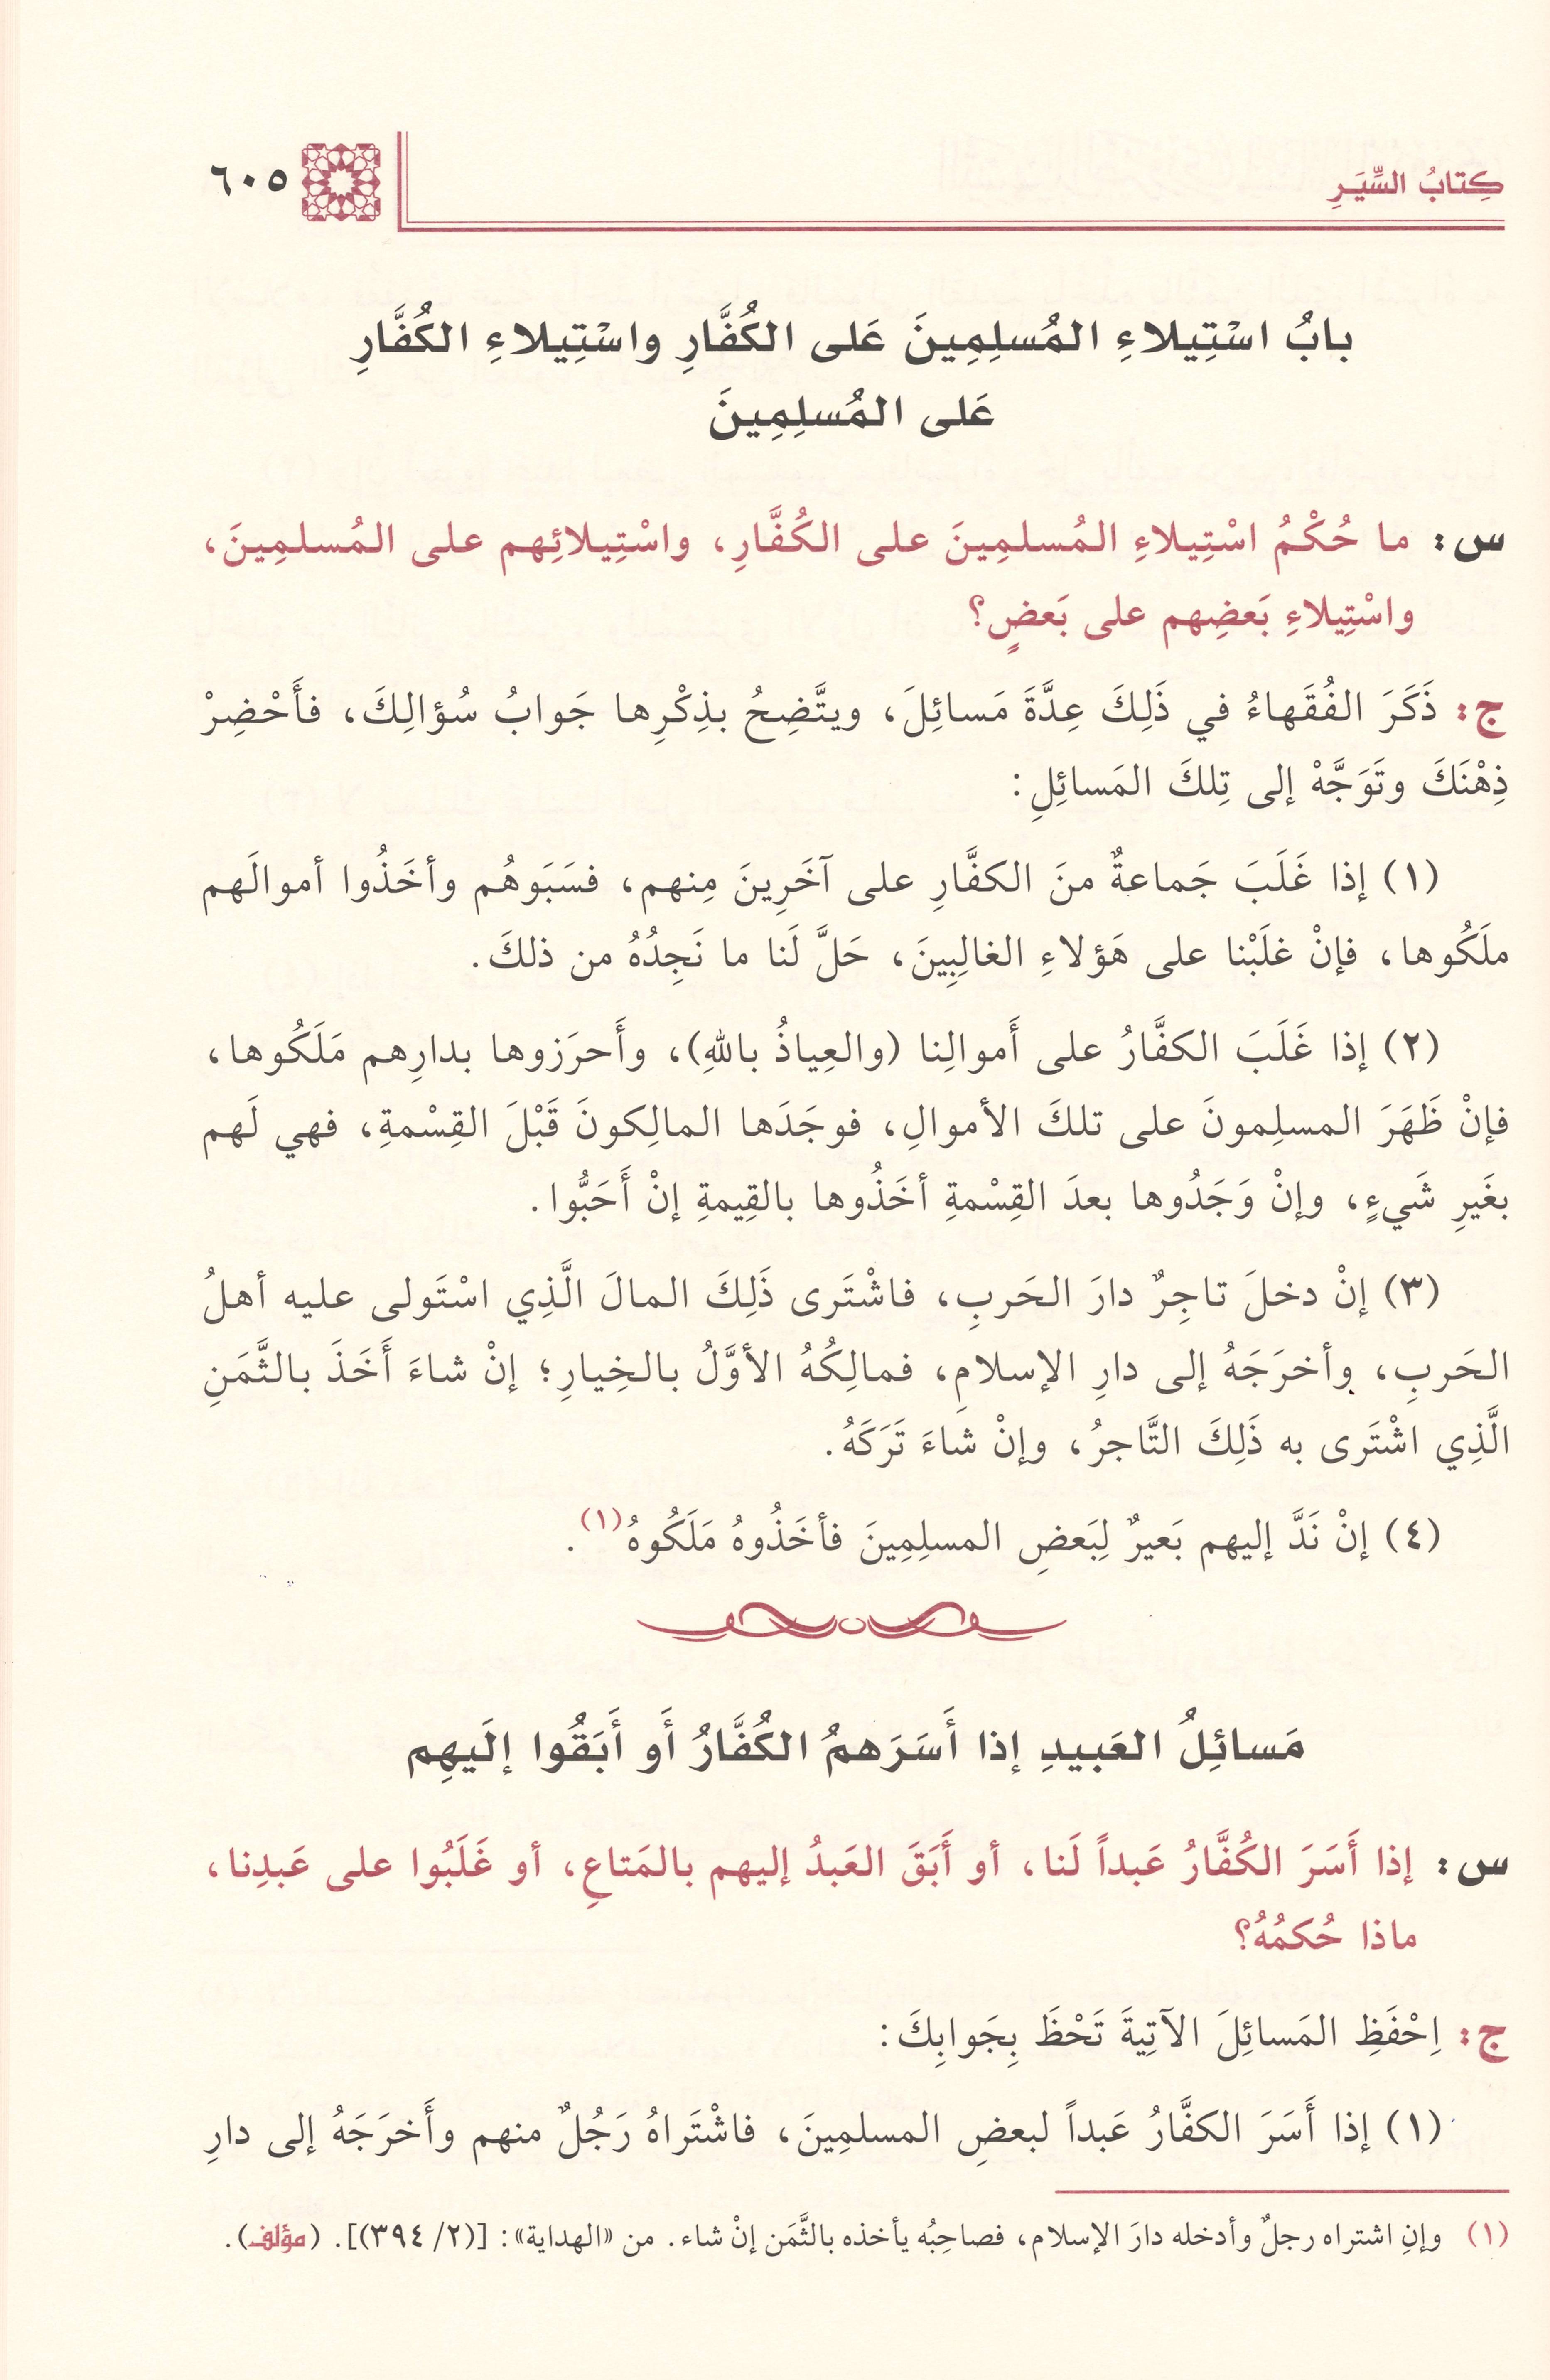 كِتابُ السِّيَرِ ٦٠٥
بابُ اسْتِيلاءِ المُسلِمِينَ عَلى الكُفَّارِ واسْتِيلاءِ الكُفَّارِ
عَلى المُسلِمِينَ
س: ما حُكْمُ اسْتِيلاءِ المُسلمِينَ على الكُفَّارِ، واسْتِيلائِهم على المُسلمِينَ،
واسْتِيلاءِ بَعضِهم على بَعضٍ؟
ج: ذَكَرَ الفُقَهاءُ في ذَلِكَ عِدَّةَ مَسائِلَ، ويتَّضِحُ بذِكْرِها جَوابُ سُؤالِكَ، فأَحْضِرْ
ذِهْنَكَ وتَوَجَّهْ إلى تِلكَ المَسائِلِ:
(١) إذا غَلَبَ جَماعةٌ منَ الكفَّارِ على آخَرِينَ مِنهم، فسَبَوهُم وأخَذُوا أموالَهم
ملَكُوها، فإنْ غلَبْنا على هَؤلاءِ الغالِبِينَ، حَلَّ لَنا ما نَجِدُهُ من ذلكَ.
(٢) إذا غَلَبَ الكفَّارُ على أَموالِنا (والعِياذُ باللهِ)، وأَحرَزوها بدارِهم مَلَكُوها،
فإنْ ظَهَرَ المسلِمونَ على تلكَ الأموالِ، فوجَدَها المالِكونَ قَبْلَ القِسْمةِ، فهي لَهم
بغَيرِ شَيءٍ، وإنْ وَجَدُوها بعدَ القِسْمةِ أخَذُوها بالقِيمةِ إنْ أَحَبُّوا.
(٣) إنْ دخلَ تاجِرٌ دارَ الحَربِ، فاشْتَرى ذَلِكَ المالَ الَّذِي اسْتَولى عليه أهلُ
الحَربِ، وأخرَجَهُ إلى دارِ الإسلامِ، فمالِكُهُ الأوَّلُ بالخِيارِ؛ إنْ شاءَ أَخَذَ بالثَّمَنِ
الَّذِي اشْتَرى به ذَلِكَ التَّاجرُ، وإنْ شاءَ تَرَكَهُ.
(٤) إنْ نَدَّ إليهم بَعيرٌ لِبَعضِ المسلِمِينَ فأخَذُوهُ مَلَكُوهُ(١).
مَسائِلُ العَبيدِ إذا أَسَرَهمُ الكُفَّارُ أَو أَبَقُوا إلَيهِم
س: إذا أَسَرَ الكُفَّارُ عَبداً لَنا، أو أَبَقَ العَبدُ إليهم بالمَتاعِ، أو غَلَبُوا على عَبدِنا،
ماذا حُكمُهُ؟
ج: اِحْفَظِ المَسائِلَ الآتِيةَ تَحْظَ بِجَوابِكَ:
(١) إذا أَسَرَ الكفَّارُ عَبداً لبعضِ المسلمِينَ، فاشْتَراهُ رَجُلٌ منهم وأَخرَجَهُ إلى دارِ
(١) وإنِ اشتراه رجلٌ وأدخله دارَ الإسلام، فصاحِبُه يأخذه بالثَّمَن إنْ شاء. من «الهداية»: [(٢/ ٣٩٤)]. (مؤلف).